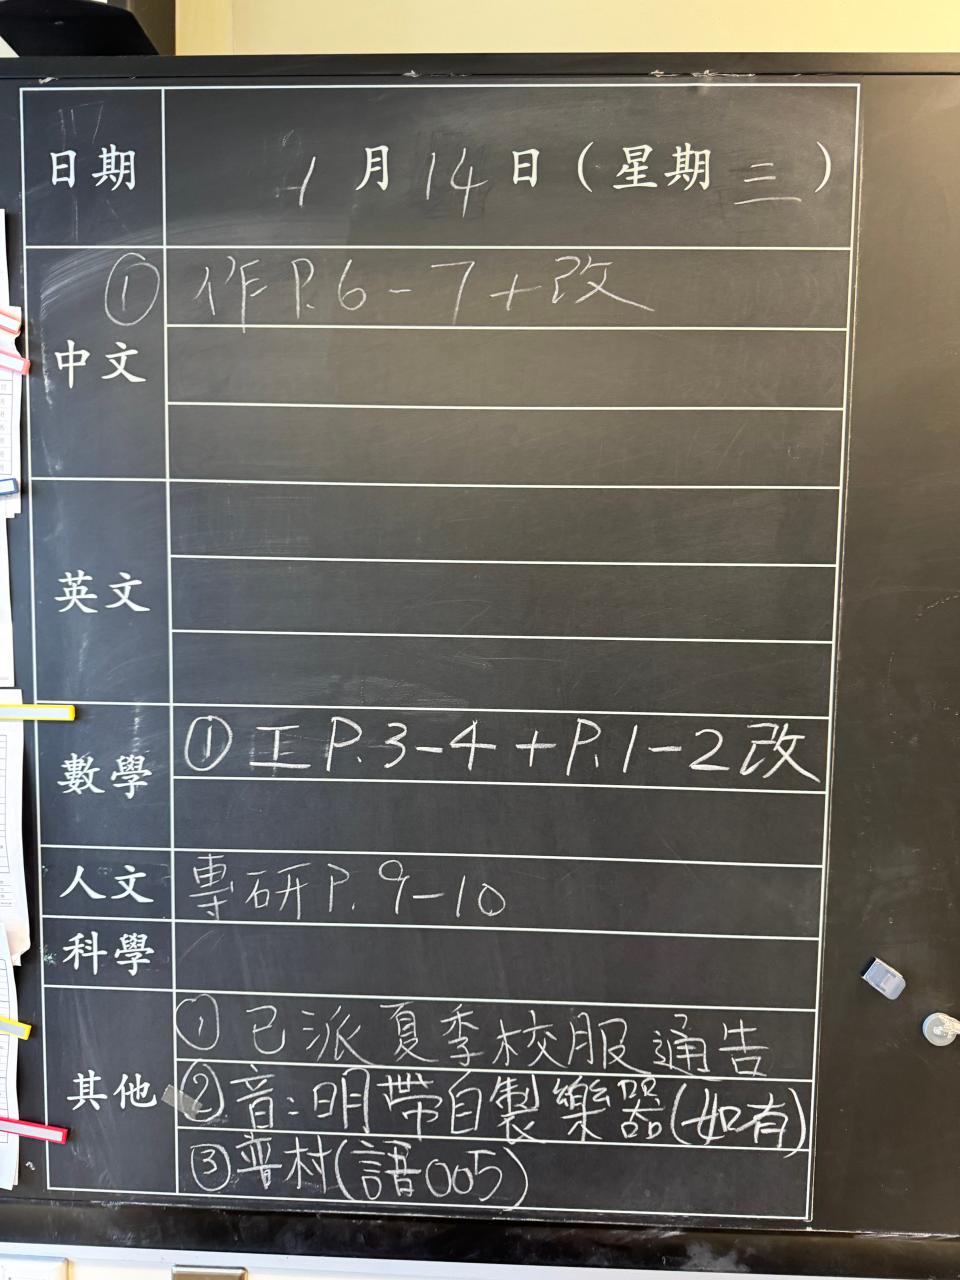 日期 1月14日(星期三)
中文 ① 作P.6-7+改
英文
數學 ① 工P.3-4+P.1-2改
人文 專研P.9-10
科學
其他 ① 已派夏季校服通告
② 音:明帶自製樂器(如有)
③ 普村(語005)